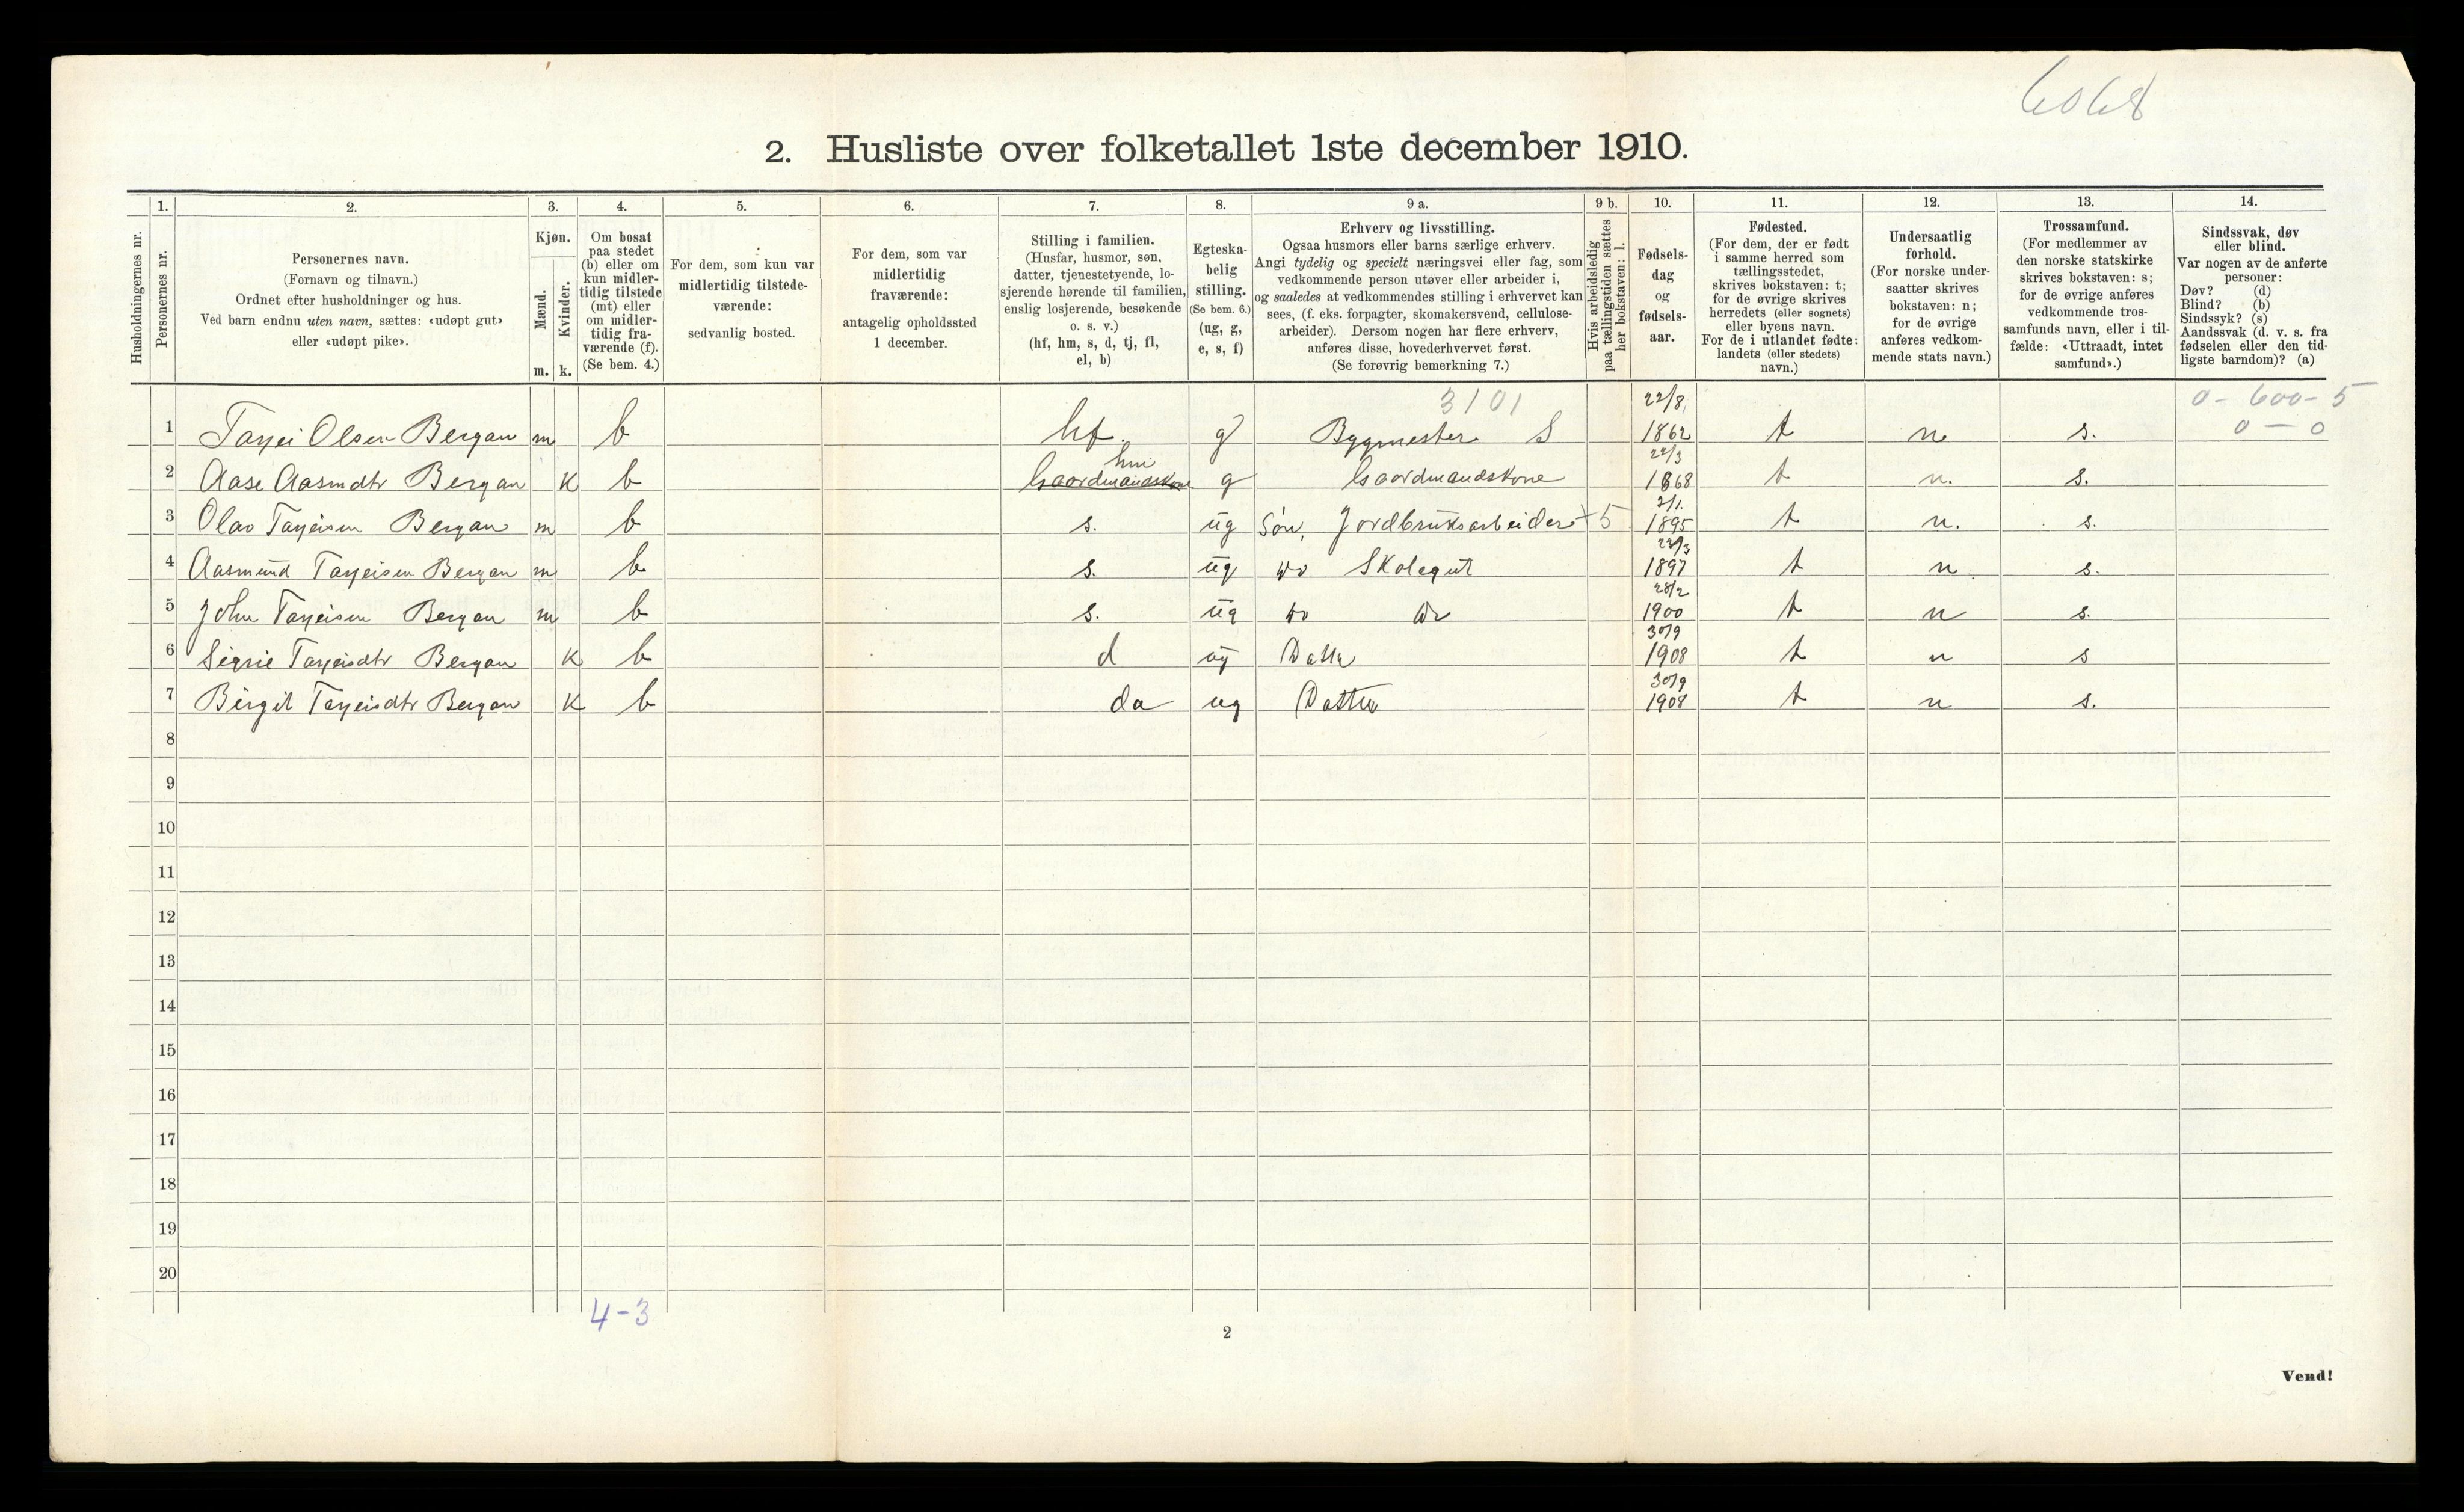 6068
2. Husliste over folketallet 1ste december 1910.
1. 2. 3. 4. 5. 6. 7. 8. 9 a. 9 b. 10. 11. 12. 13. 14.
Husholdningernes nr.
Personernes nr.
Personernes navn.
(Fornavn og tilnavn.)
Ordnet efter husholdninger og hus.
Ved barn endnu uten navn, sættes: «udøpt gut»
eller «udøpt pike».
Kjøn.
Mænd.
Kvinder.
m. k.
Om bosat
paa stedet
(b) eller om
kun midler-
tidig tilstede
(mt) eller
om midler-
tidig fra-
værende (f).
(Se bem. 4.)
For dem, som kun var
midlertidig tilstede-
værende:
sedvanlig bosted.
For dem, som var
midlertidig
fraværende:
antagelig opholdssted
1 december.
Stilling i familien.
(Husfar, husmor, søn,
datter, tjenestetyende, lo-
sjerende hørende til familien,
enslig losjerende, besøkende
o. s. v.)
(hf, hm, s, d, tj, fl,
el, b)
Egteska-
belig
stilling.
(Se bem. 6.)
(ug, g,
e, s, f)
Erhverv og livsstilling.
Ogsaa husmors eller barns særlige erhverv.
Angi tydelig og specielt næringsvei eller fag, som
vedkommende person utøver eller arbeider i,
og saaledes at vedkommendes stilling i erhvervet kan
sees, (f. eks. forpagter, skomakersvend, cellulose-
arbeider). Dersom nogen har flere erhverv,
anføres disse, hovederhvervet først.
(Se forøvrig bemerkning 7.)
Hvis arbeidsledig
paa tællingstiden sættes
her bokstaven: l.
Fødsels-
dag
og
fødsels-
aar.
Fødested.
(For dem, der er født
i samme herred som
tællingsstedet,
skrives bokstaven: t;
for de øvrige skrives
herredets (eller sognets)
eller byens navn.
For de i utlandet fødte:
landets (eller stedets)
navn.)
Undersaatlig
forhold.
(For norske under-
saatter skrives
bokstaven: n;
for de øvrige
anføres vedkom-
mende stats navn.)
Trossamfund.
(For medlemmer av
den norske statskirke
skrives bokstaven: s;
for de øvrige anføres
vedkommende tros-
samfunds navn, eller i til-
fælde: «Uttraadt, intet
samfund».)
Sindssvak, døv
eller blind.
Var nogen av de anførte
personer:
Døv? (d)
Blind? (b)
Sindssyk? (s)
Aandssvak (d. v. s. fra
fødselen eller den tid-
ligste barndom)? (a)
3101 22/8 0-600-5
1 Tarjei Olsen Bergan m b hf. g Bygmester S 1862 t n s. 0 — 0
hm 22/3
2 Aase Aasmdtr Bergan K b Gaardmandskone g Gaardmandskone 1868 t n. s.
2/1.
3 Olav Tarjeisen Bergan m b s. ug Søn, Jordbruksarbeider +5 1895 t n. s.
22/3
4 Aasmund Tarjeisen Bergan m b s. ug do Skolegut 1897 t n s.
28/2
5 John Tarjeisen Bergan m b s. ug do do 1900 t n s.
30/9
6 Signe Tarjeisdtr Bergan K b d ug Datter 1908 t n s
30/9
7 Birgit Tarjeisdtr Bergan K b da ug Datter 1908 t n s.
8
9
10
11
12
13
14
15
16
17
18
19
20
4-3
2
Vend!